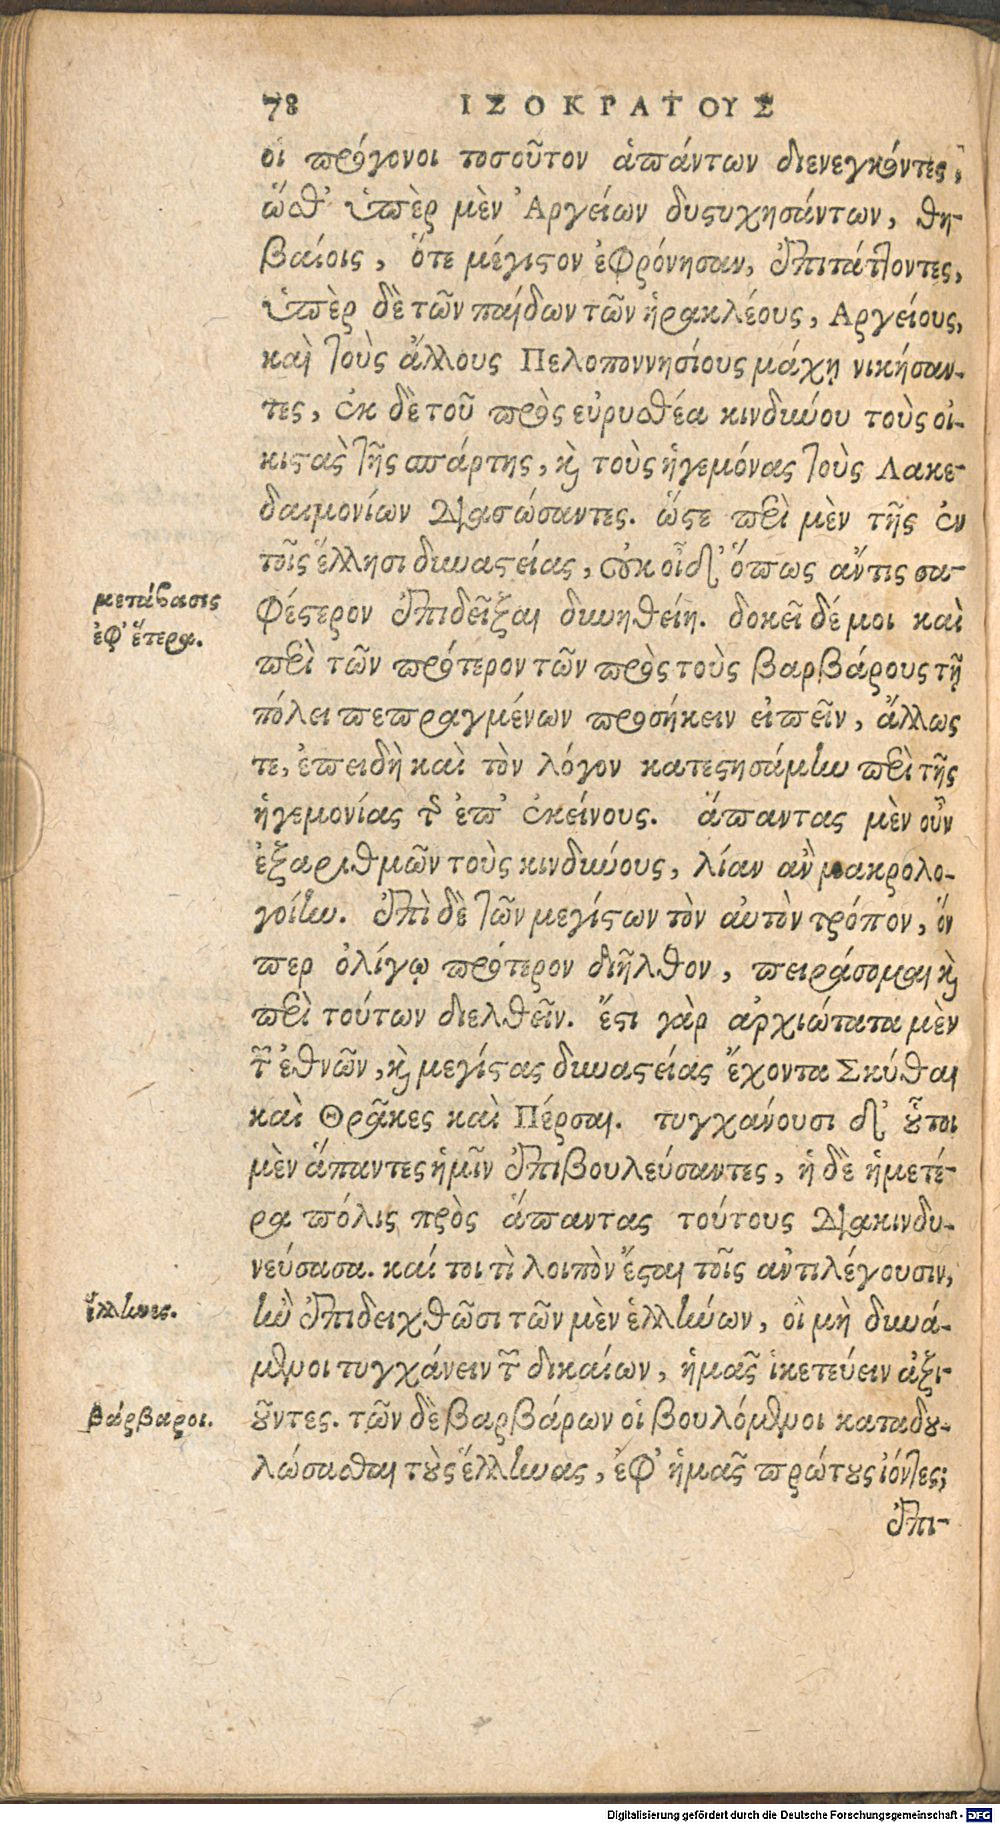 78 ΙΣΟΚΡΑΤΟΥΣ
οἱ πρόγονοι τοσοῦτον ἁπάντων διενεγκόντες,
ὥσθ' ὑπὲρ μὲν Ἀργείων δυςυχησάντων, θη-
βαίοις, ὅτε μέγιςον ἐφρόνησαν, ἐπιτάττοντες,
ὑπὲρ δὲ τῶν παίδων τῶν ἡρακλέους, Αργείους,
καὶ τοὺς ἄλλους Πελοποννησίους μάχῃ νικήσαν-
τες, ἐκ δὲ τοῦ πρὸς εὐρυσθέα κινδύνου τοὺς οἰ-
κιςὰς τῆς σπάρτης, καὶ τοὺς ἡγεμόνας τοὺς Λακε-
δαιμονίων διασώσαντες. ὥςε περὶ μὲν τῆς ἐν
τοῖς ἕλλησι δυναςείας, οὐκ οἶδ' ὅπως ἄν τις σα-
φέςερον ἐπιδεῖξαι δυνηθείη. δοκεῖ δέ μοι καὶ
περὶ τῶν πρότερον τῶν πρὸς τοὺς βαρβάρους τῇ
πόλει πεπραγμένων προσήκειν εἰπεῖν, ἄλλως
τε, ἐπειδὴ καὶ τὸν λόγον κατεςησάμην περὶ τῆς
ἡγεμονίας τῆς ἐπ' ἐκείνους. ἅπαντας μὲν οὖν
ἐξαριθμῶν τοὺς κινδύνους, λίαν ἂν μακρολο-
γοίην. ἐπὶ δὲ τῶν μεγίςων τὸν αὐτὸν τρόπον, ὅν
περ ὀλίγῳ πρότερον διῆλθον, πειράσομαι καὶ
περὶ τούτων διελθεῖν. ἔςι γὰρ ἀρχιώτατα μὲν
τῶν ἐθνῶν, καὶ μεγίςας δυναςείας ἔχοντα Σκύθαι
καὶ Θρᾷκες καὶ Πέρσαι. τυγχάνουσι δ' οὗτοι
μὲν ἅπαντες ἡμῖν ἐπιβουλεύσαντες, ἡ δὲ ἡμετέ-
ρα πόλις πρὸς ἅπαντας τούτους διακινδυ-
νεύσασα. καί τοι τὶ λοιπὸν ἔςαι τοῖς ἀντιλέγουσιν,
ἢν ἐπιδειχθῶσι τῶν μὲν ἑλλήνων, οἱ μὴ δυνά-
μενοι τυγχάνειν τῶν δικαίων, ἡμᾶς ἱκετεύειν ἀξι-
οῦντες. τῶν δὲ βαρβάρων οἱ βουλόμενοι καταδου-
λώσασθαι τοὺς ἕλληνας, ἐφ' ἡμᾶς πρώτους ἰόντες;
ἐπι-
μετάβασις
ἐφ' ἕτερα.
ἕλληνες.
βάρβαροι.
Digitalisierung gefördert durch die Deutsche Forschungsgemeinschaft - DFG